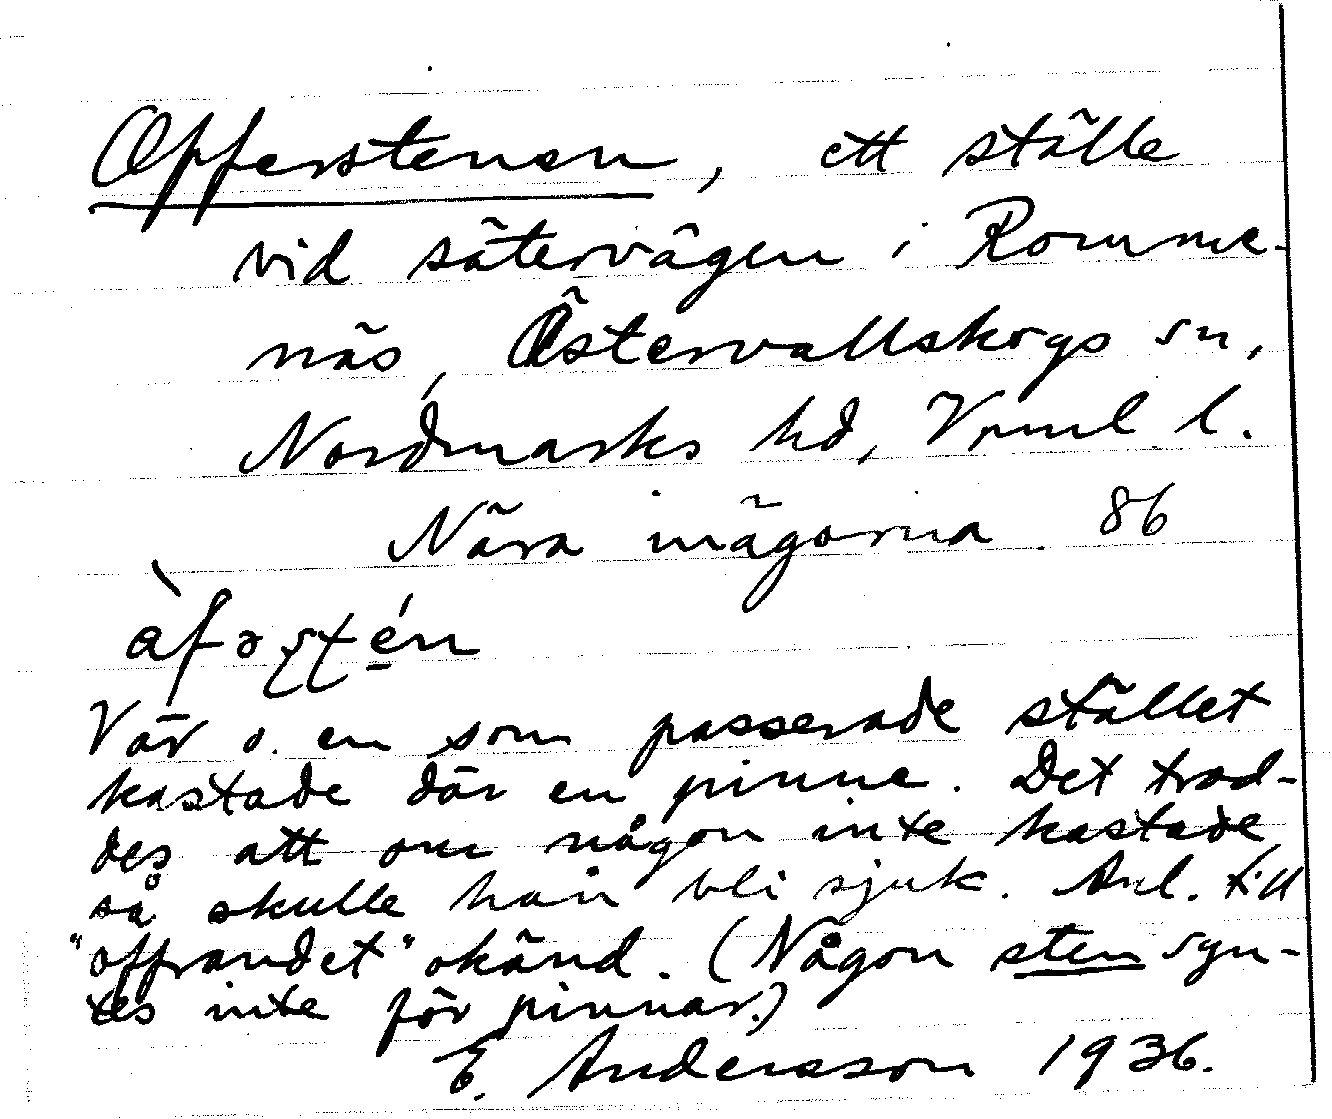 Offerstenen, ett ställe
vid sätervägen i Romme-
näs, Östervallskogs sn,
Nordmarks hd, Vrml l.
Nära inägorna 86
Var o. en som passerade stället
kastade där en pinne. Det trod-
des att om någon inte kastade
så skulle han bli sjuk. Anl. till
"offrandet" okänd. (Någon sten syn-
tes inte för pinnar.)
E. Andersson 1936.